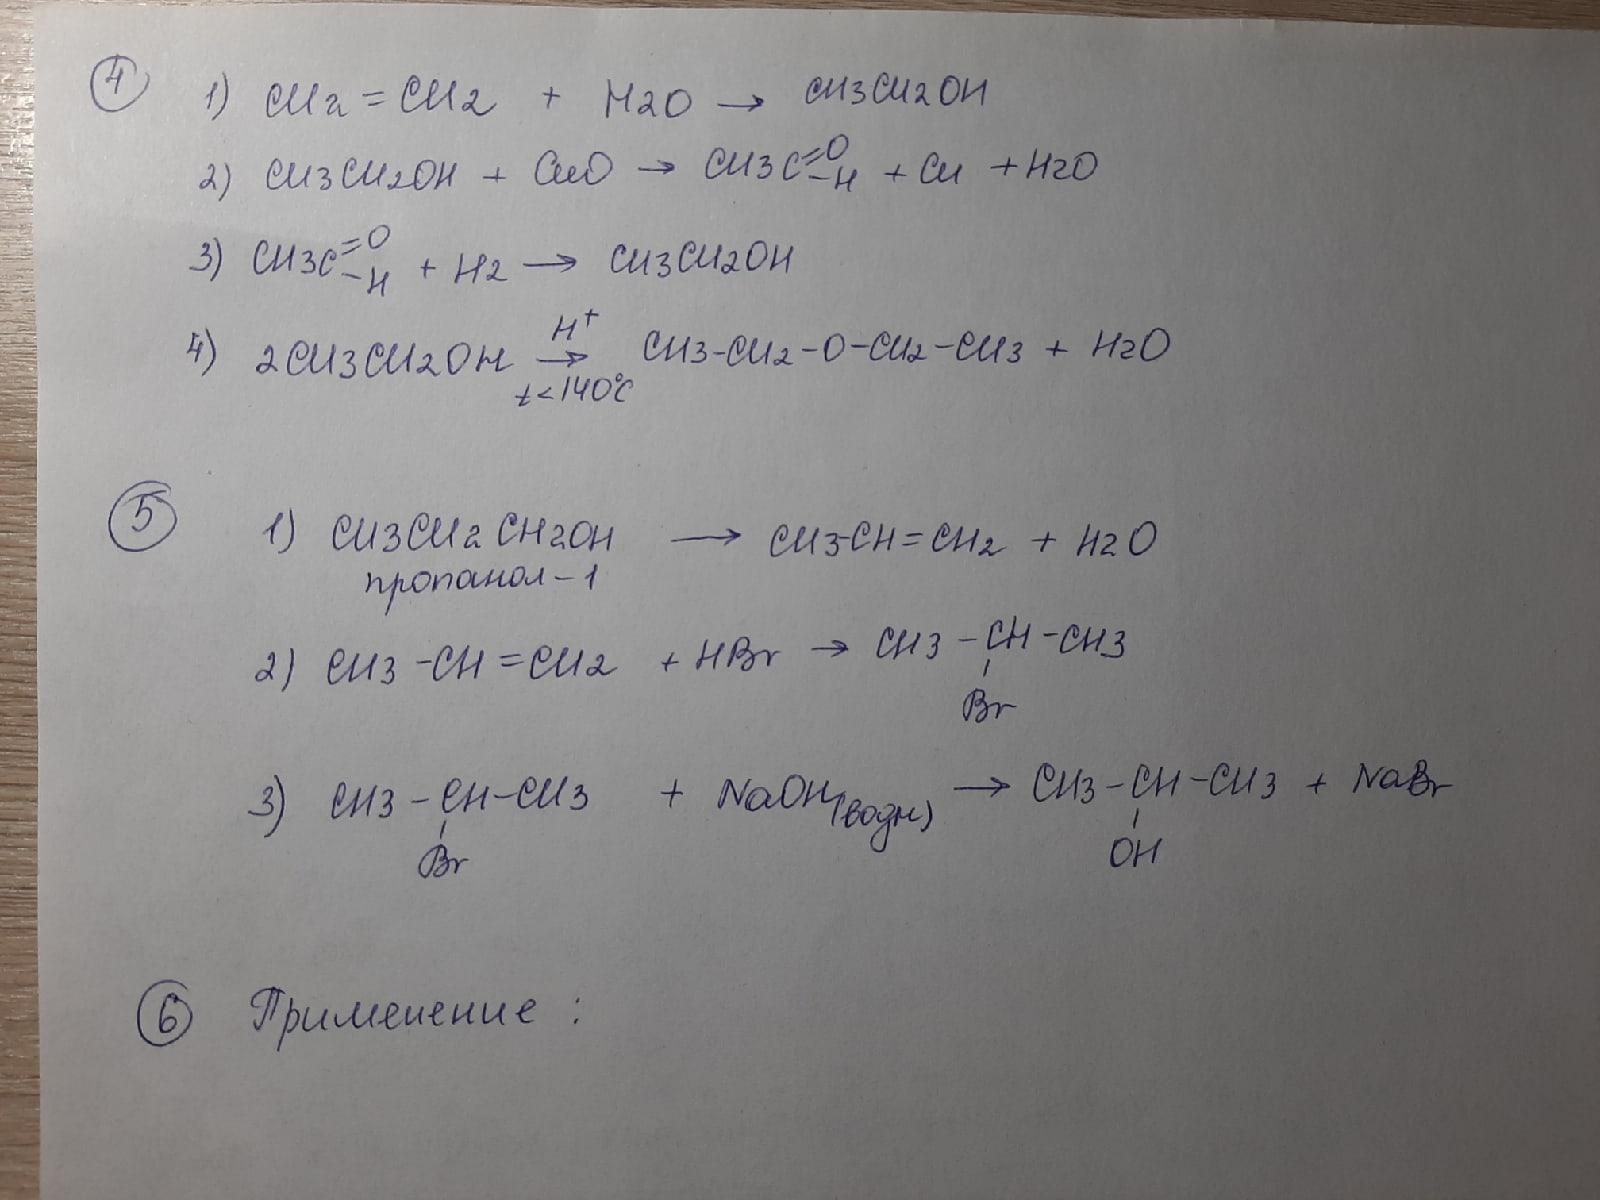 4 1) CH2=CH2 + H2O → CH3CH2OH
2) CH3CH2OH + CuO → CH3C=O-H + Cu + H2O
3) CH3C=O-H + H2 → CH3CH2OH
4) 2CH3CH2OH H+ → t<140°C CH3-CH2-O-CH2-CH3 + H2O
5 1) CH3CH2CH2OH → CH3-CH=CH2 + H2O
пропанол-1
2) CH3-CH=CH2 + HBr → CH3-CH-CH3
Br
3) CH3-CH-CH3 + NaOH(водн) → CH3-CH-CH3 + NaBr
Br OH
6 Применение: